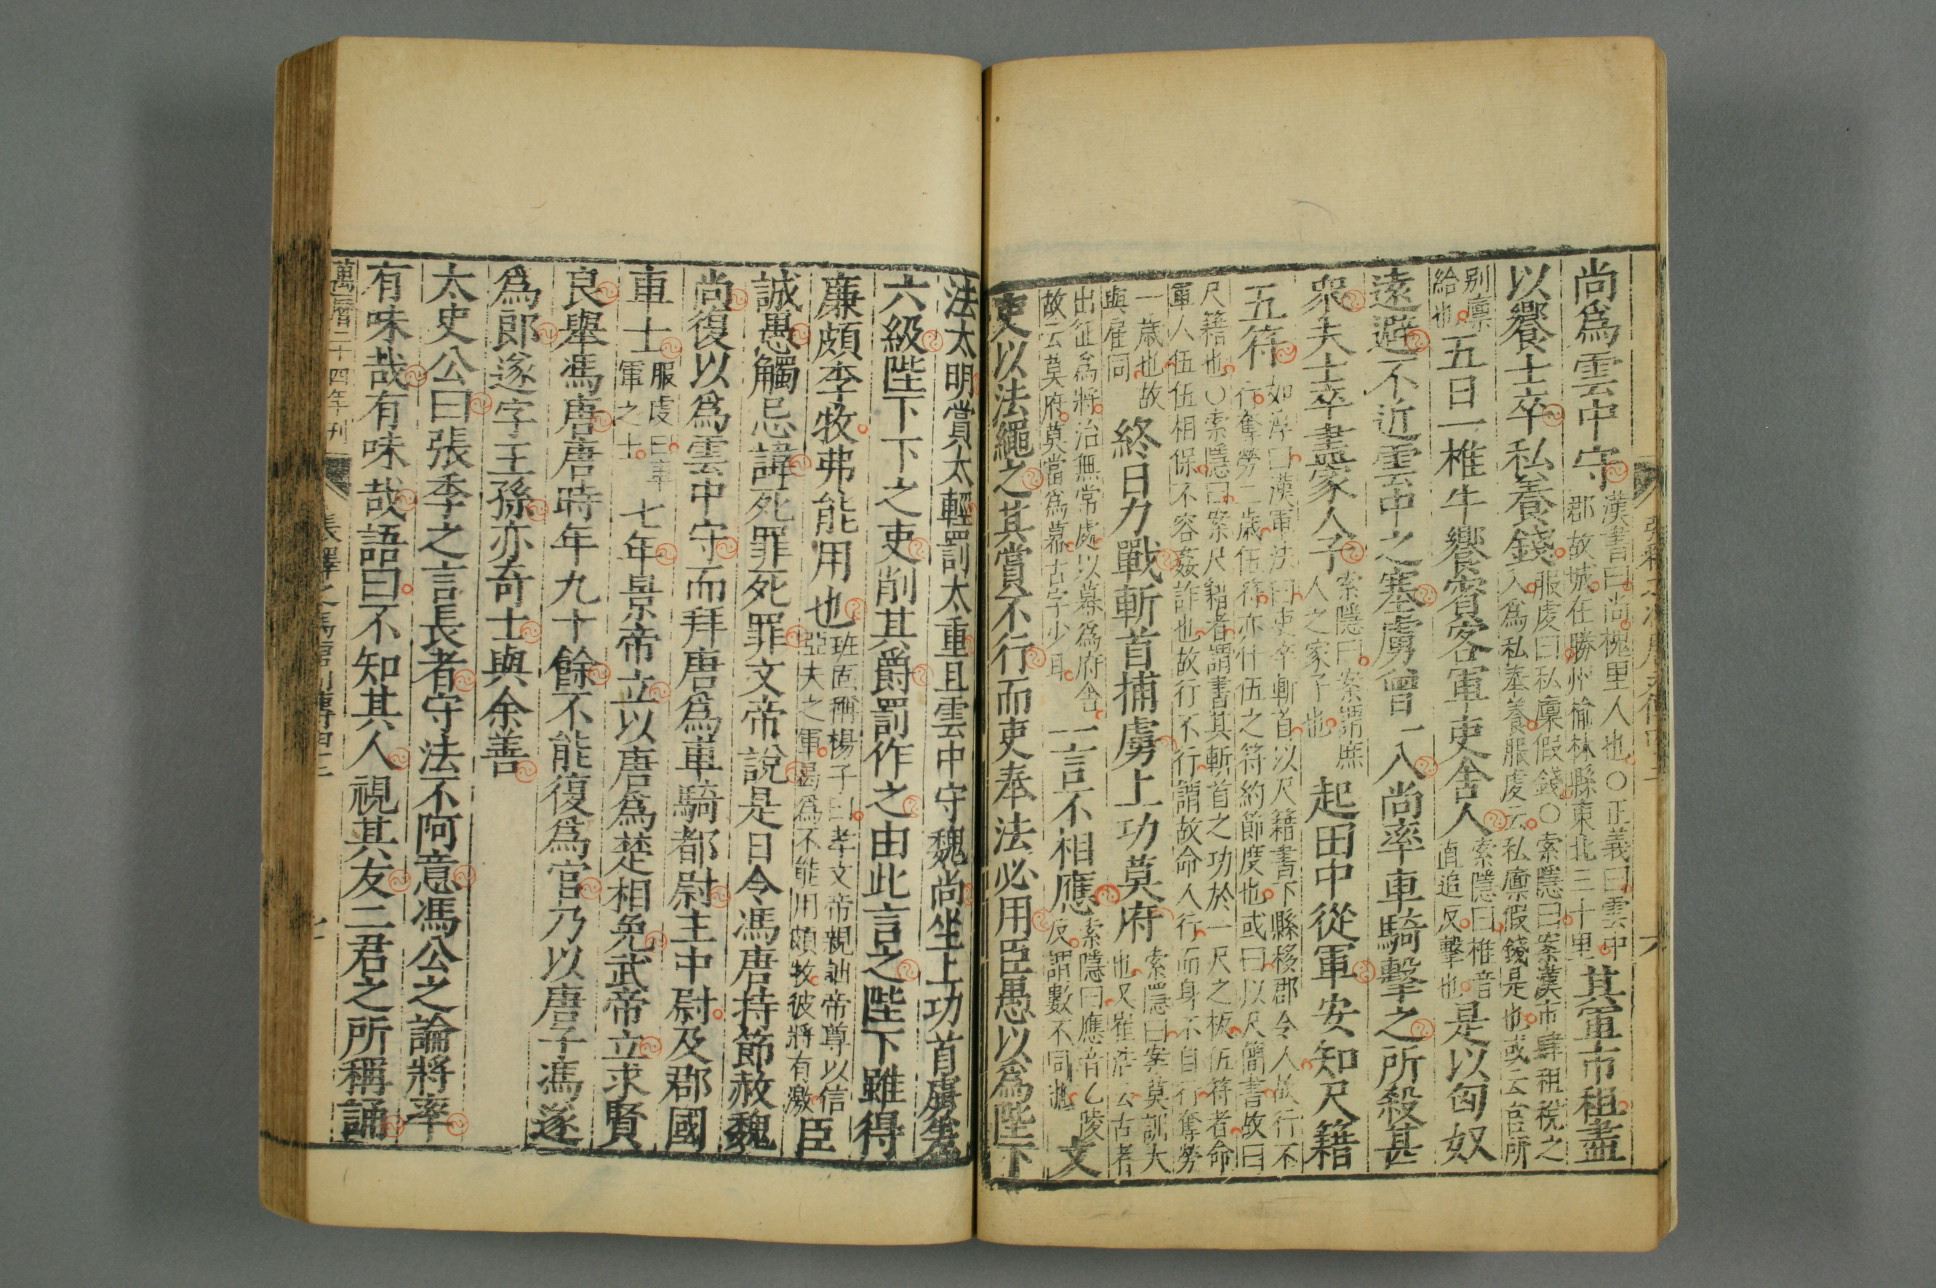 尚爲雲中守漢書曰尚槐里人也○正義曰雲中郡故城在勝州榆林縣東北三十里其軍市租盡
以饗士卒私養錢服虔曰私廩假錢○索隱曰案漢市肆租稅之入爲私奉養服虔云私廩假錢是也或云官所
別廩給也五日一椎牛饗賓客軍吏舍人索隱曰椎音直追反擊也是以匈奴
遠避不近雲中之塞虜曾一入尚率車騎擊之所殺甚
衆夫士卒盡家人子索隱曰案謂庶人之家子也起田中從軍安知尺籍
五符如淳曰漢軍法曰吏卒斬首以尺籍書下縣移郡令人故行不行奪勞二歲伍符亦什伍之符約節度也或曰以尺簡書故曰
尺籍也○索隱曰案尺籍者謂書其斬首之功於一尺之板伍符者命軍人伍伍相保不容姦詐也故行不行謂故命人行而身不自行奪勞
一歲也故與雇同終日力戰斬首捕虜上功莫府索隱曰案莫訓大也又崔浩云古者
出征爲將治無常處以幕爲府舍故云莫府莫當爲幕古字少耳一言不相應索隱曰應音乙陵反謂數不同也文
吏以法繩之其賞不行而吏奉法必用臣愚以爲陛下
法太明賞太輕罰太重且雲中守魏尚坐上功首虜差
六級陛下下之吏削其爵罰作之由此言之陛下雖得
廉頗李牧弗能用也班固稱楊子曰孝文帝親詘帝尊以信亞夫之軍曷爲不能用頗牧彼將有激臣
誠愚觸忌諱死罪死罪文帝說是日令馮唐持節赦魏
尚復以爲雲中守而拜唐爲車騎都尉主中尉及郡國
車士服虔曰車軍之士七年景帝立以唐爲楚相免武帝立求賢
良舉馮唐唐時年九十餘不能復爲官乃以唐子馮遂
爲郎遂字王孫亦奇士與余善
太史公曰張季之言長者守法不阿意馮公之論將率
有味哉有味哉語曰不知其人視其友二君之所稱誦
萬曆二十四年刊 張釋之馮唐列傳四十二 七